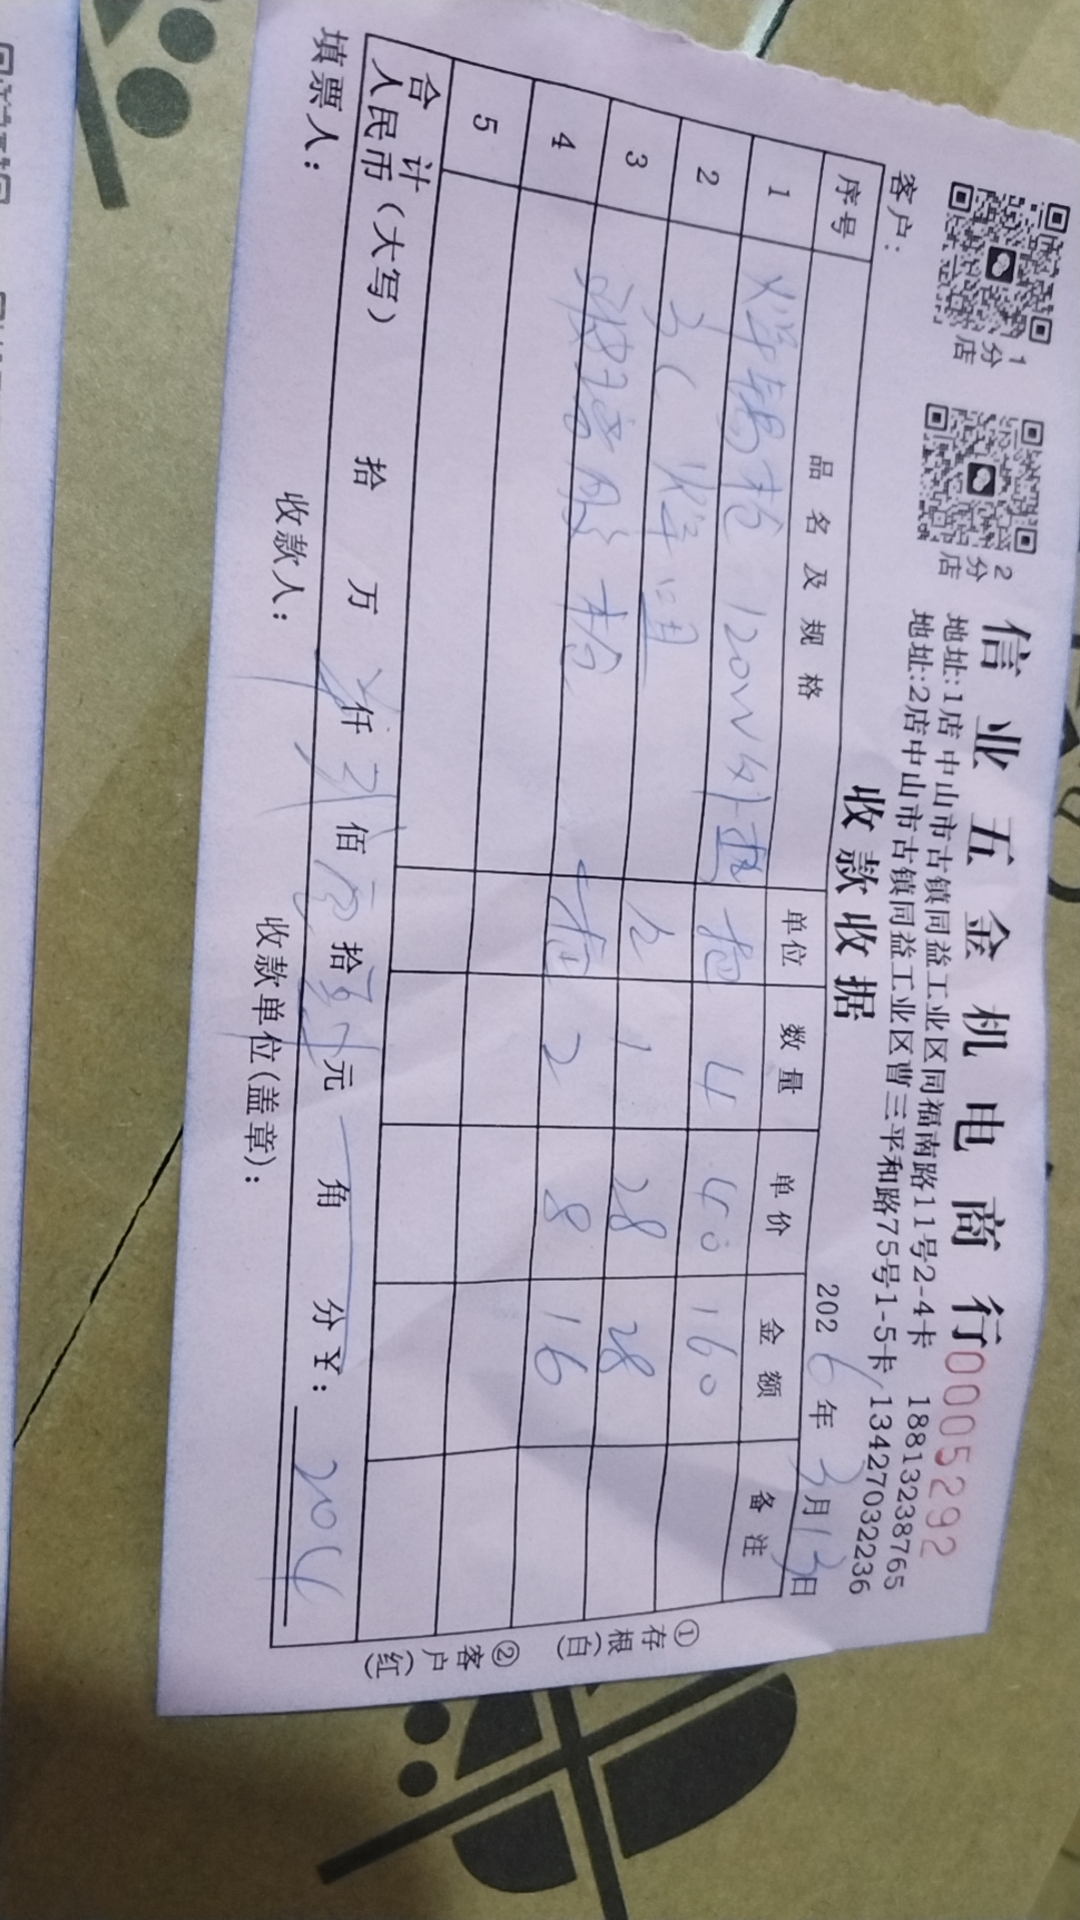 信业五金机电商行
00005292
1分店
2分店
地址:1店 中山市古镇同益工业区同福南路11号2-4卡 18813238765
地址:2店中山市古镇同益工业区曹三平和路75号1-5卡 13427032236
收款收据
客户: 2026年3月13日
序号 品名及规格 单位 数量 单价 金额 备注
1 焊锡枪 120W外热 把 4 40 160
2 焊 1 28 28
3 玻璃胶枪 把 2 8 16
4
5
合计人民币(大写) 拾 万 仟 佰 拾 元 角 分¥: 204
填票人: 收款人: 收款单位(盖章):
①存根(白)
②客户(红)